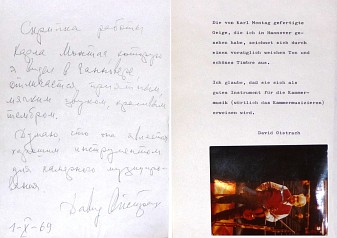 Скрипка работы
Карла Монтаг которую
я видел в Ганновере
отличается, приятным,
мягким звуком, красивым
тембром.
Думаю, что она является
хорошим инструментом
для камерного музициро-
вания.
1-X-69
Die von Karl Montag gefertigte
Geige, die ich in Hannover ge-
sehen habe, zeichnet sich durch
einen vorzüglich weichen Ton und
schönes Timbre aus.
Ich glaube, daß sie sich als
gutes Instrument für die Kammer-
musik (wörtlich das Kammermusizieren)
erweisen wird.
David Oistrach